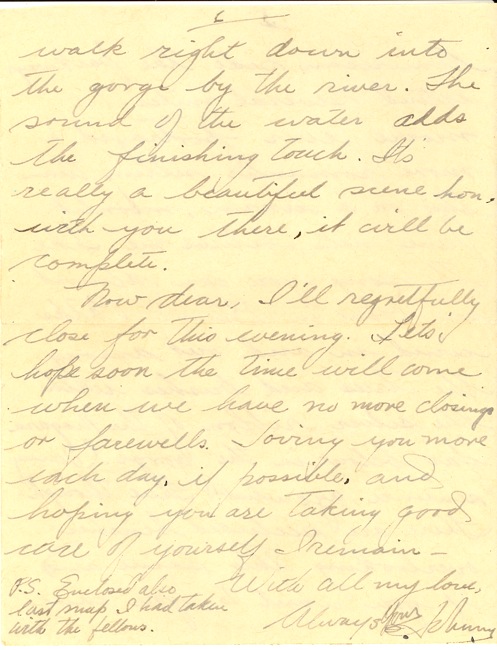 6
walk right down into
the gorge by the river. The
sound of the water adds
the finishing touch. It's
really a beautiful scene hon,
with you there, it will be
complete.
Now dear, I'll regretfully
close for this evening. Lets
hope soon the time will come
when we have no more closings
or farewells. Loving you more
each day, if possible, and
hoping you are taking good
care of yourself I remain -
With all my love,
Always Johnny
P.S. Enclosed also
last snap I had taken
with the fellows.